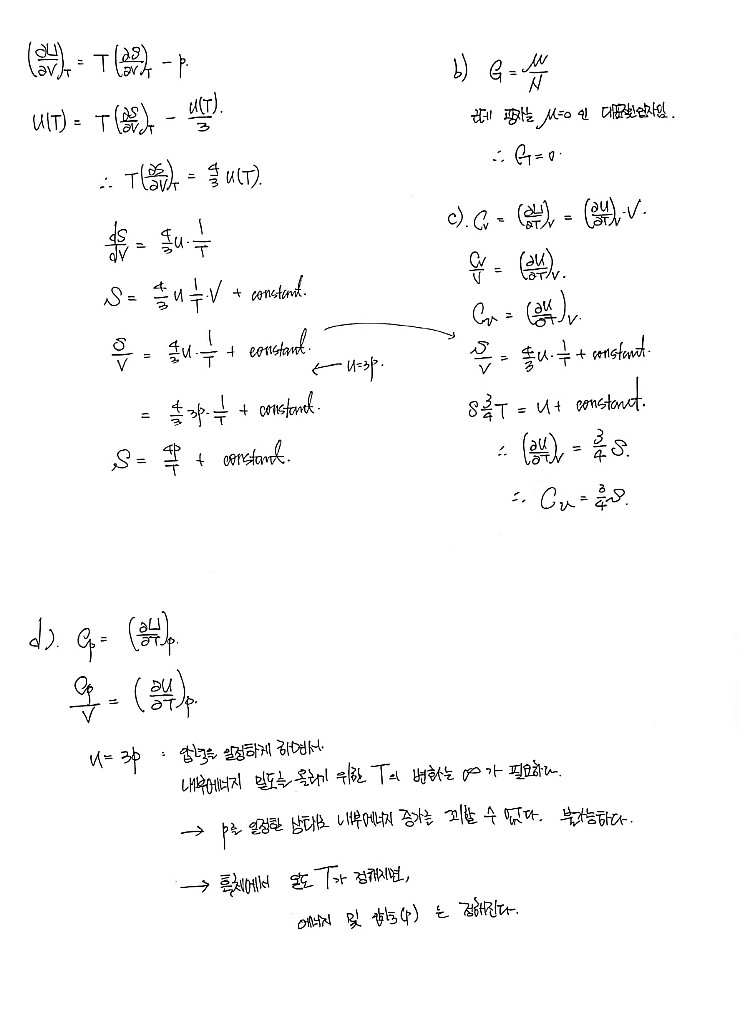 (∂U/∂V)_T = T(∂S/∂V)_T - p.
u(T) = T(∂S/∂V)_T - u(T)/3.
∴ T(∂S/∂V)_T = 4/3 u(T).
dS/dV = 4/3 u · 1/T
S = 4/3 u 1/T · V + constant.
S/V = 4/3 u · 1/T + constant.
← u=3p.
= 4/3 3p · 1/T + constant.
S = 4p/T + constant.
b) G = μ/N
근데 광자는 μ=0 인
∴ G=0.
c). Cv = (∂U/∂T)_V = (∂u/∂T)_V · V.
Cv/V = (∂u/∂T)_V.
Cu = (∂u/∂T)_V.
S/V = 4/3 u · 1/T + constant.
S 3/4 T = u + constant.
∴ (∂u/∂T)_V = 3/4 S.
∴ Cu = 3/4 S.
d). Cp = (∂U/∂T)_p.
Cp/V = (∂u/∂T)_p.
u = 3p : 압력을 일정하게 하면서.
내부에너지 밀도를 올리기 위한 T의 변화는 ∞가 필요하다.
→ p를 일정한 상태로 내부에너지 증가는 꾀할 수 없다. 불가능하다.
→ 흑체에서 온도 T가 정해지면,
에너지 및 압력(p) 는 정해진다.